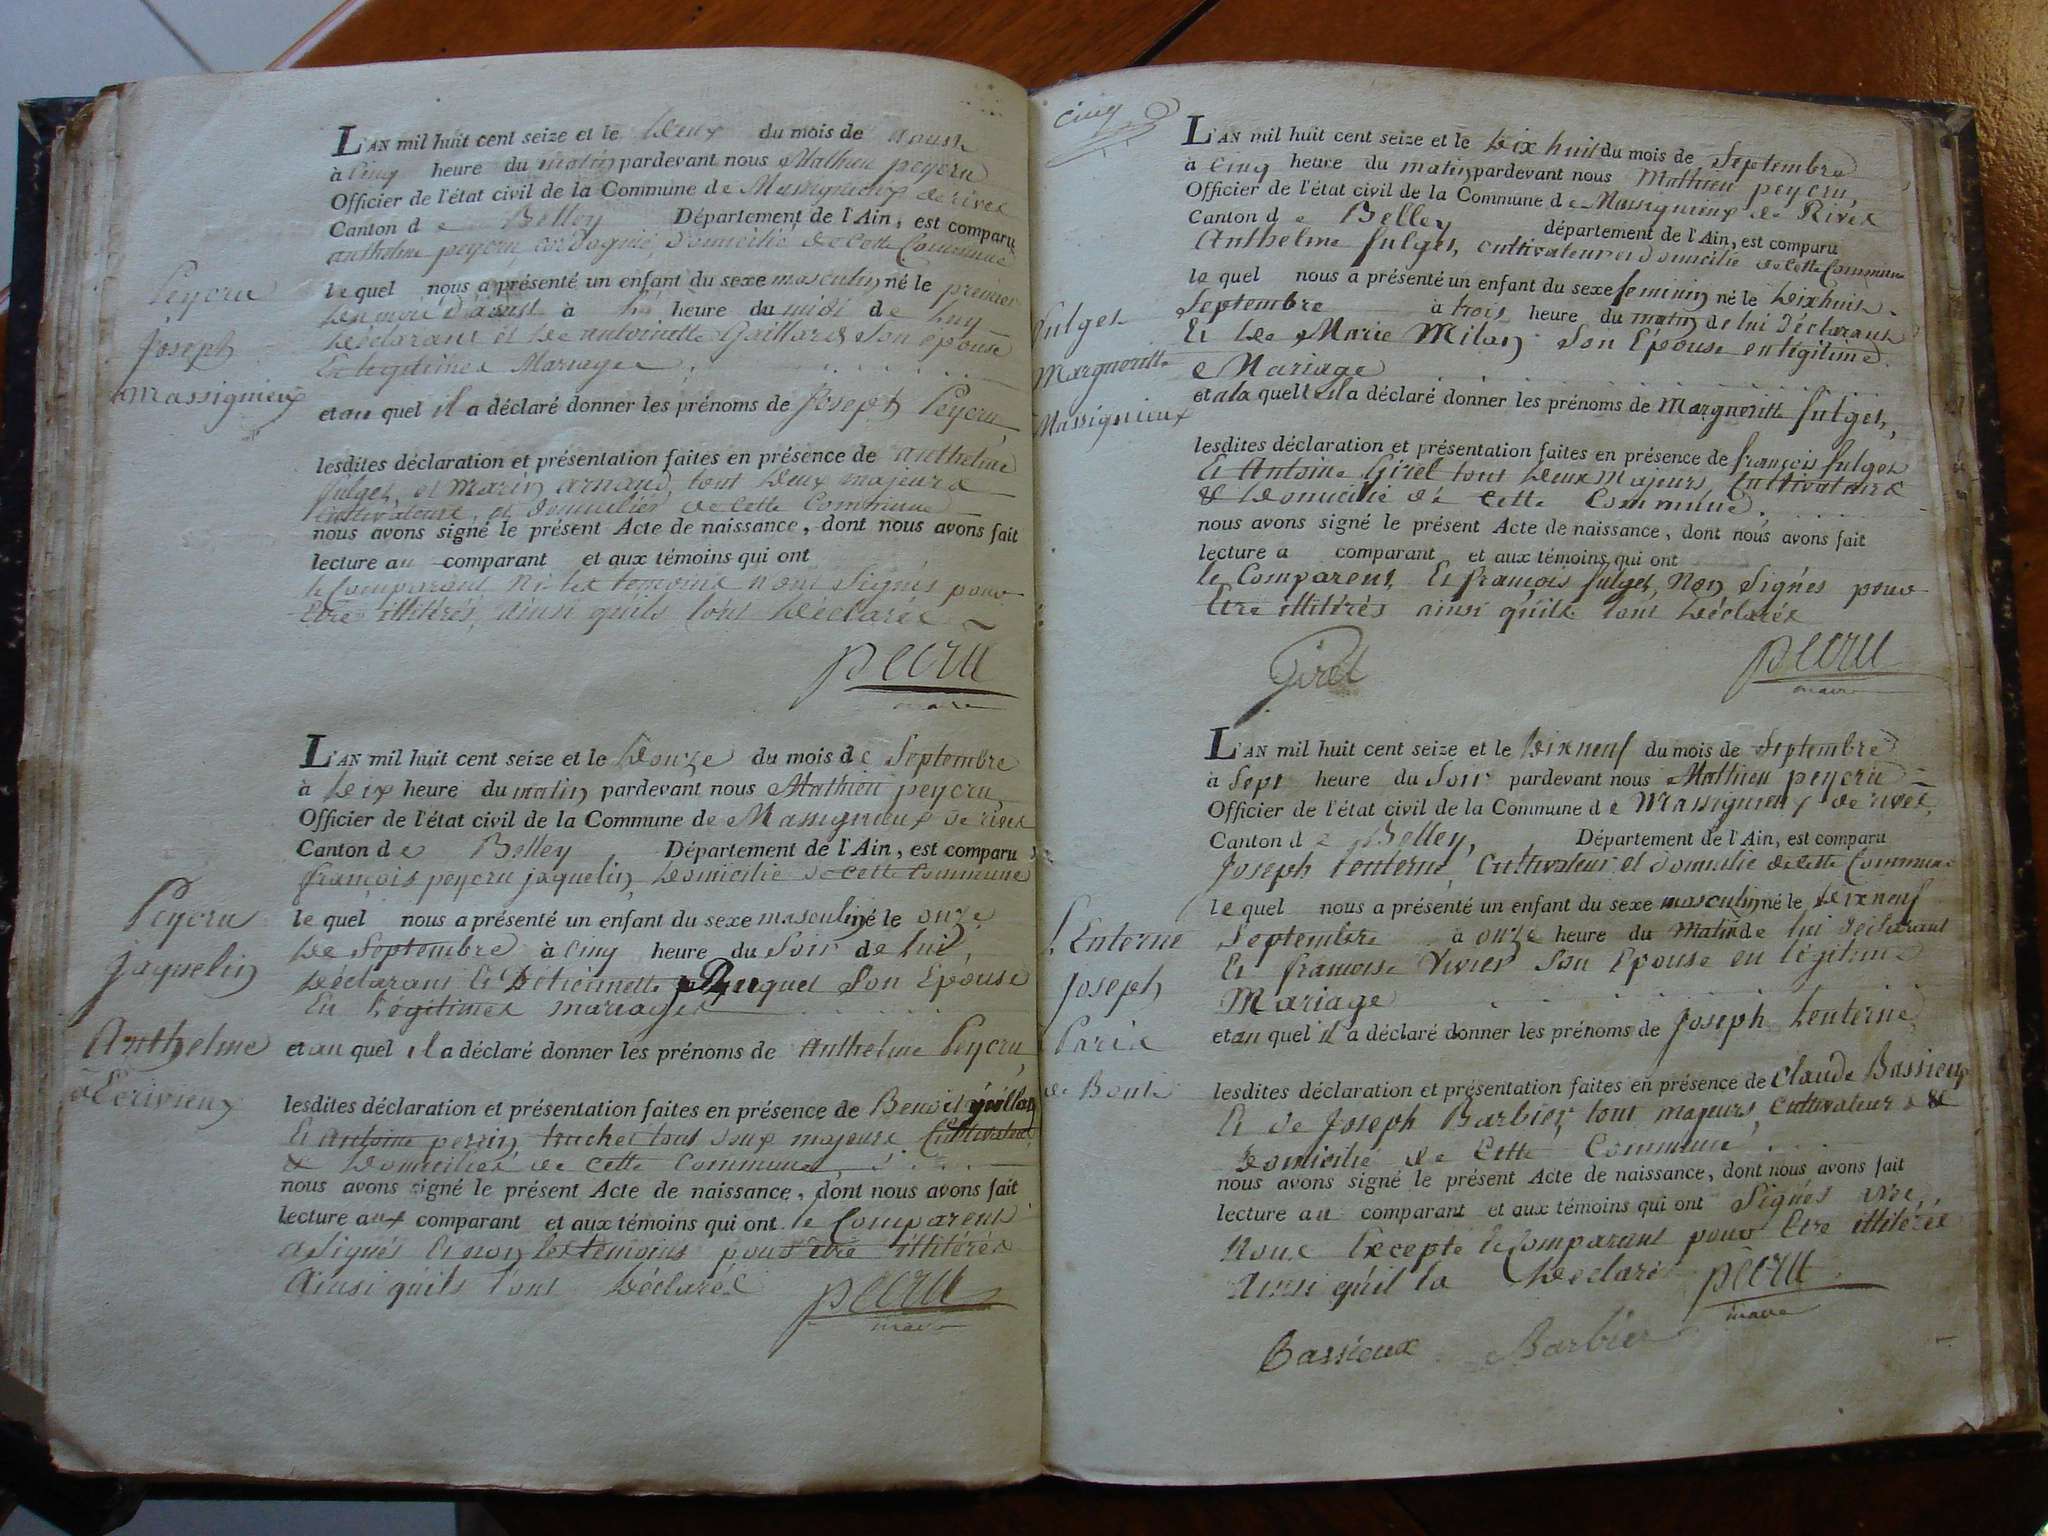 L'AN mil huit cent seize et le deux du mois de aoust
à Cinq heure du matin pardevant nous Mathieu peycru
Officier de l'état civil de la Commune de Massignieux de rives
Canton de Belley Département de l'Ain, est comparu
anthelme peycru domicilié de cette Commune
Peycru
Joseph
Massignieux
le quel nous a présenté un enfant du sexe masculin né le premier
du mois d'aoust à heure du midi de luy
déclarant et de antoinette Gaillard son epouse
En legitimes Mariages
et au quel il a déclaré donner les prénoms de Joseph Peycru
lesdites déclaration et présentation faites en présence de anthelme
fulget, et Marin arnaud, tout deux majeurs
Cultivateurs, et domiciliés de cette Commune
nous avons signé le présent Acte de naissance, dont nous avons fait
lecture au comparant et aux témoins qui ont
le Comparant ni les temoins n'ont Signés pour
Etre illitérés, ainsi qu'ils l'ont déclarés
pecru
maire
L'AN mil huit cent seize et le douze du mois de Septembre
à dix heure du matin pardevant nous Mathieu peycru
Officier de l'état civil de la Commune de Massignieux de rives
Canton de Belley Département de l'Ain, est comparu
françois peycru jaquelin, domicilié de cette Commune
Peycru
jaquelin
Anthelme
le quel nous a présenté un enfant du sexe masculin né le onze
de Septembre à Cinq heure du Soir de lui
déclarant Et Son Epouse
En légitimes mariages
et au quel il a déclaré donner les prénoms de Anthelme Peycru
lesdites déclaration et présentation faites en présence de Benoit
Et Antoine perrin truchet tout deux majeurs Cultivateurs
& domiciliés de cette Commune
nous avons signé le présent Acte de naissance, dont nous avons fait
lecture aux comparant et aux témoins qui ont le Comparent
a Signés Et non les temoins pour etre illitérés
Ainsi qu'ils l'ont déclarés
pecru
maire
cinq
L'AN mil huit cent seize et le dix huit du mois de Septembre
à Cinq heure du matin pardevant nous Mathieu peycru
Officier de l'état civil de la Commune de Massignieux de Rives
Canton de Belley département de l'Ain, est comparu
Anthelme fulget, cultivateur et domicilié de cette Commune
fulget
Margueritte
Massignieux
le quel nous a présenté un enfant du sexe feminin né le dixhuit
Septembre à trois heure du matin de lui déclarant
Et de Marie Milan Son Epouse en légitime
Mariage
et a la quelle il a déclaré donner les prénoms de Margueritte fulget,
lesdites déclaration et présentation faites en présence de françois fulget
Et Antoine Girel tout deux Majeurs, Cultivateurs
& domicilié de cette Commune
nous avons signé le présent Acte de naissance, dont nous avons fait
lecture a comparant et aux témoins qui ont
le Comparent Et françois fulget, Non Signés pour
Etre illitérés ainsi qu'ils l'ont déclarés
Girel
pecru
maire
L'AN mil huit cent seize et le dixneuf du mois de Septembre
à Sept heure du Soir pardevant nous Mathieu peycru
Officier de l'état civil de la Commune de Massignieux de rives
Canton de Belley, Département de l'Ain, est comparu
Joseph Lenterne, Cultivateur et domicilié de cette Commune
Lenterne
Joseph
le quel nous a présenté un enfant du sexe masculin né le dixneuf
Septembre à onze heure du Matin de lui déclarant
Et françoise Vivier Son Epouse en légitime
Mariage
et au quel il a déclaré donner les prénoms de Joseph Lenterne
lesdites déclaration et présentation faites en présence de Claude Bassieux
Et de Joseph Barbier, tout majeurs, cultivateurs &
domicilié de Cette Commune
nous avons signé le présent Acte de naissance, dont nous avons fait
lecture au comparant et aux témoins qui ont Signés avec
Nous Excepté le Comparent pour Etre illitérés
Ainsi qu'il la déclaré
pecru
maire
Bassieux
Barbier